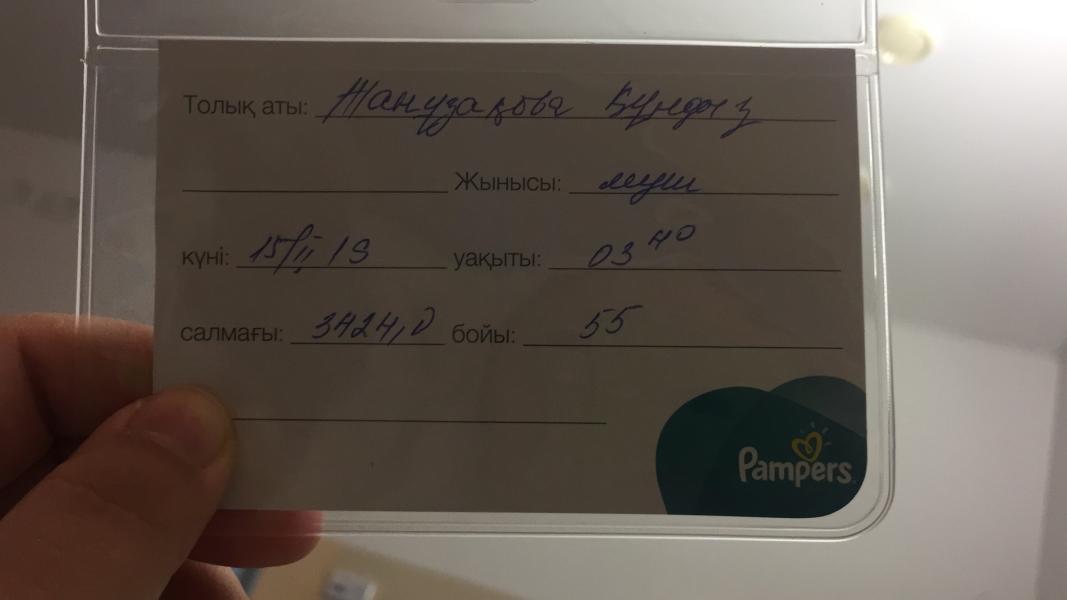 Толық аты: Жанузақова Құндыз
Жынысы: муж
күні: 15/II 19 уақыты: 03 40
салмағы: 3424,0 бойы: 55
Pampers